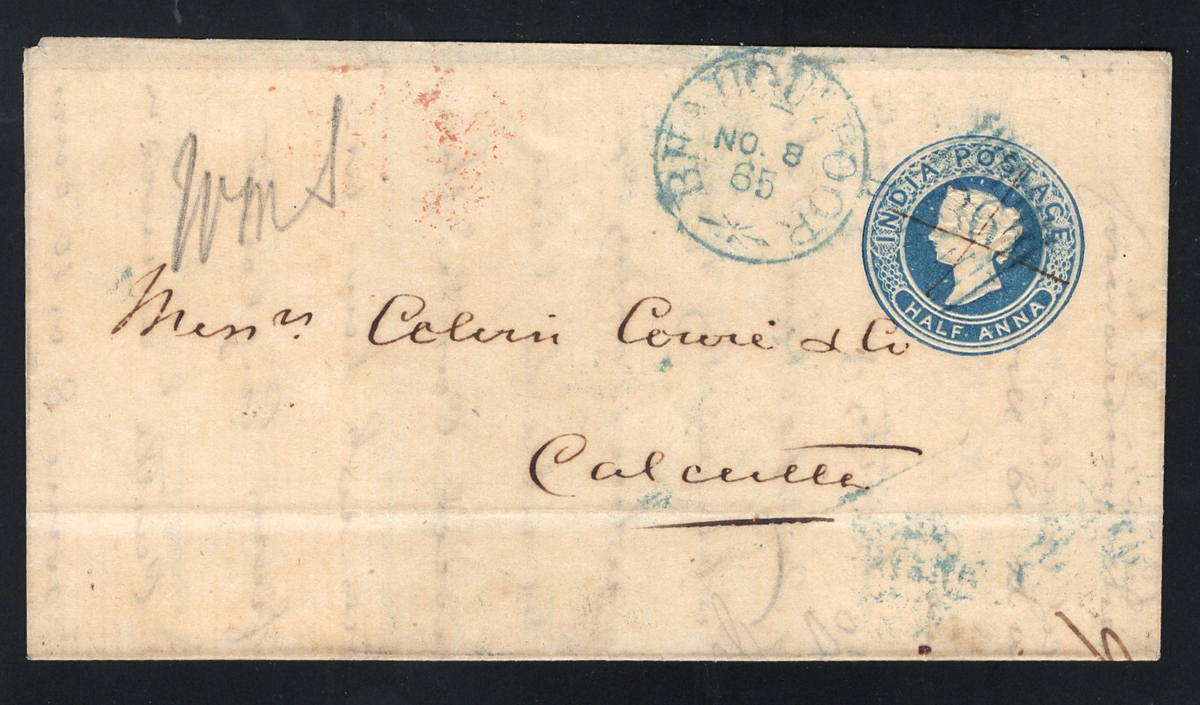 BHAUGULPOOR
NO. 8
65
INDIA POSTAGE
HALF ANNA
Wm S.
Messrs Colvin Cowie & Co
Calcutta